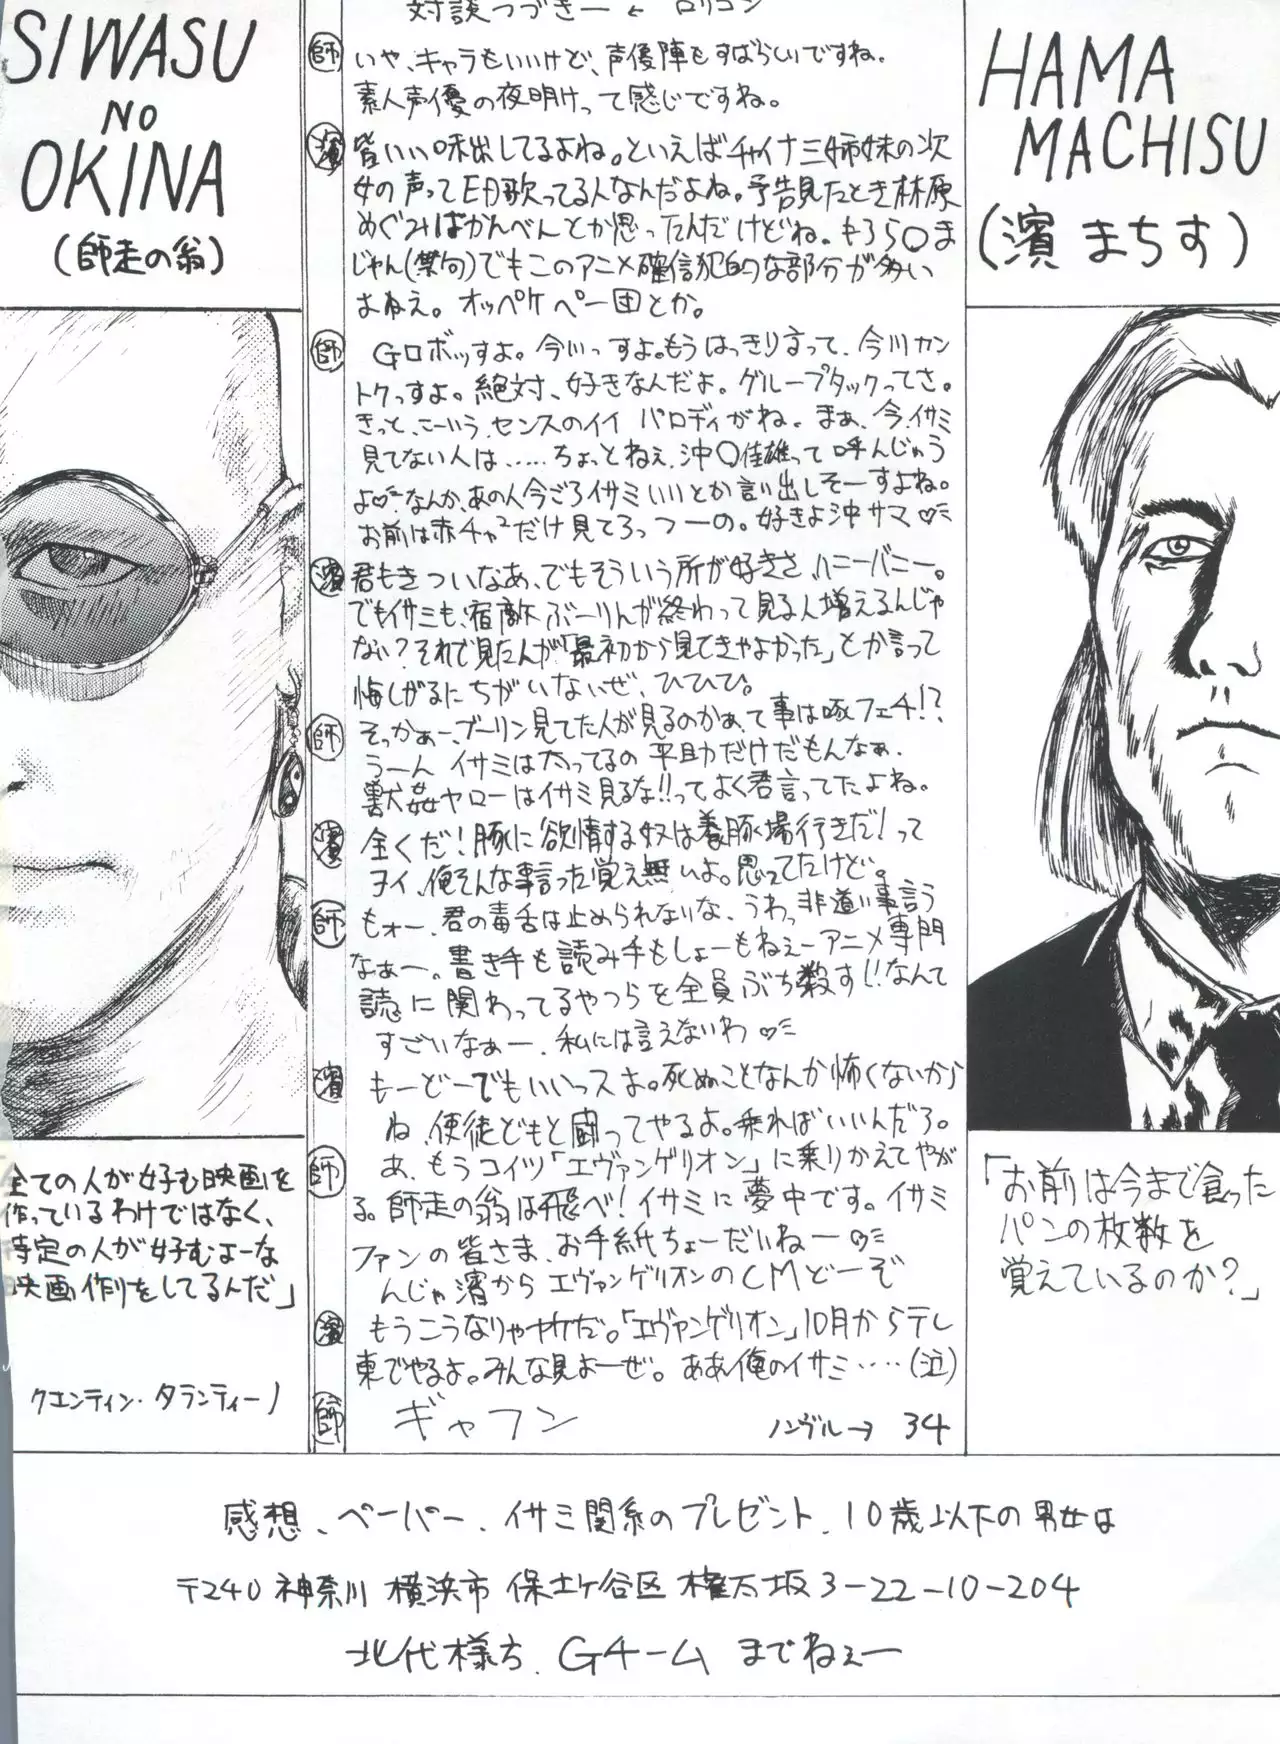 SIWASU
NO
OKINA
(師走の翁)
対談つづきー ← ロリコン
師 いや、キャラもいいけど、声優陣もすばらしいですね。
素人声優の夜明けって感じですね。
濱 皆いい味出してるよね。といえばチャイナ三姉妹の次
女の声ってED歌ってる人なんだよね。予告見たとき林原
めぐみばかんべんとか思ったんだけどね。もろ５〇ま
じゃん(禁句)でもこのアニメ確信犯的な部分が多い
よねえ。オッペケペー団とか。
師 Gロボッすよ。今川っすよ。もうはっきり言って、今川カン
トクっすよ。絶対、好きなんだよ。グループタックってさ。
きっと、こーいう、センスのイイ パロディがね。まぁ、今、イサミ
見てない人は、……ちょっとねぇ、沖〇佳雄って呼んじゃう
よ♡なんか、あの人今ごろイサミいいとか言い出しそーすよね。
お前は赤チャ²だけ見てろっつーの。好きよ沖サマ♡
濱 君もきついなあ、でもそういう所が好きさ、ハニーバニー。
でもイサミも、宿敵ぶーりんが終わって見る人増えるんじゃ
ない?それで見たんが「最初から見てきゃよかった」とか言って
悔しがるにちがいないぜ、ひひひ。
師 そっかぁー、ブーリン見てた人が見るのかぁ、て事は啄フェチ!?
うーん イサミは太ってるの 平助だけだもんなぁ、
獣姦ヤローはイサミ見るな!!ってよく君言ってたよね。
濱 全くだ!豚に欲情する奴は養豚場行きだ!って
ヲイ、俺そんな事言った覚え無いよ。思ってたけど。
師 もォー、君の毒舌は止められないな、うわっ非道い事言う
なぁー。書き手も読み手もしょーもねぇーアニメ専門
誌に関わってるやつらを全員ぶち殺す!!なんて
すごいなぁー、私には言えないわ♡
濱 もーどーでもいいっスよ。死ぬことなんか怖くないから
ね、使徒どもと闘ってやるよ。乗ればいいんだろ。
師 あ、もうコイツ「エヴァンゲリオン」に乗りかえてやが
る。師走の翁は飛べ!イサミに夢中です。イサミ
ファンの皆さま、お手紙ちょーだいねー♡
んじゃ濱から エヴァンゲリオンのCMどーぞ
濱 もうこうなりゃヤケだ。「エヴァンゲリオン」10月からテレ
東でやるよ。みんな見よーぜ。ああ俺のイサミ‥‥(泣)
師 ギャフン
ノンブル→ 34
HAMA
MACHISU
(濱 まちす)
全ての人が好む映画を
作っているわけではなく、
特定の人が好むよーな
映画作りをしてるんだ」
クエンティン・タランティーノ
「お前は今まで食った
パンの枚数を
覚えているのか?」
感想、ペーパー、イサミ関係のプレゼント、10歳以下の男女は
〒240 神奈川 横浜市 保土ヶ谷区 権太坂3-22-10-204
北代様方、Gチーム までねぇー